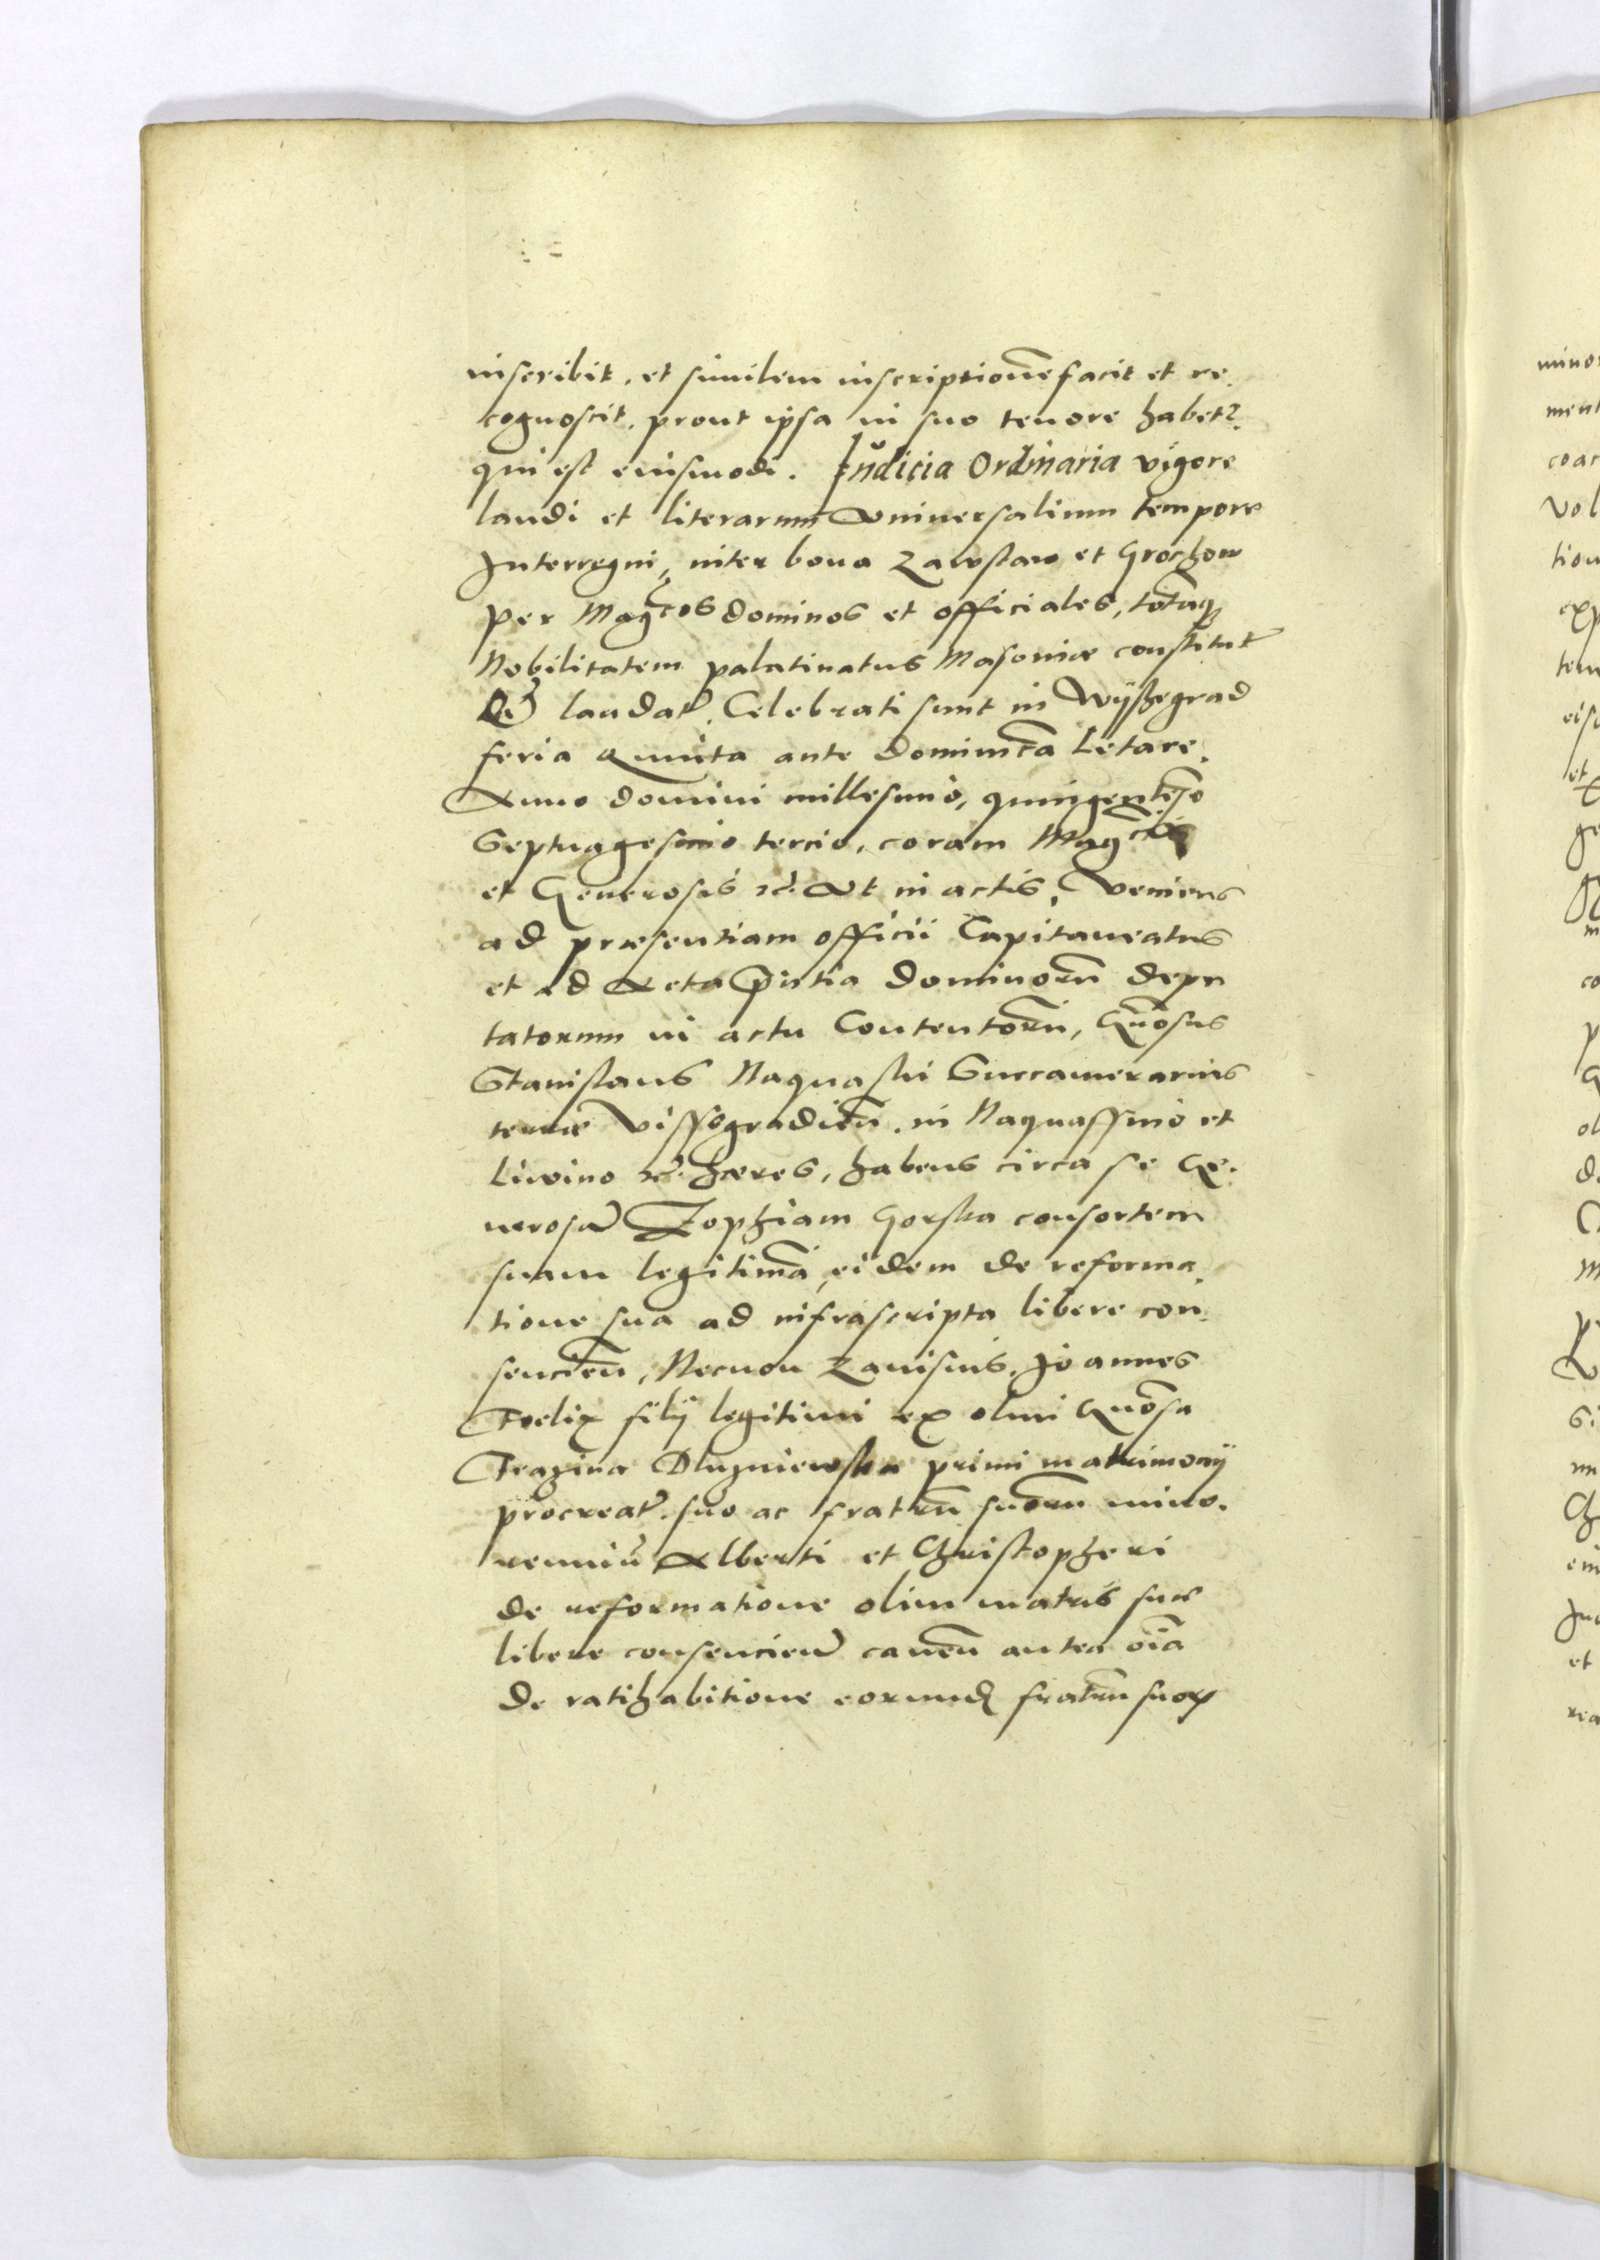 inscribit, et similem inscriptionẽ facit et re.
cognoscit, prout ipsa in suo tenore habet².
qui est eiusmodi. Iudicia Ordinaria vigore
laudi et literarum vniuersalium tempore
Interregni, inter bona Zawstaw et Grochow
per Magcos dominos et officiales, totãq
Nobilitatem palatinatus Masoniæ constitut
laudat. Celebrati sunt in Wyszegrad
feria quinta ante Dominicã Letare.
Anno domini millesimo, quingentẽso
Septuagesimo tercio, coram Magcis
et Generosis rc. vt in actis, veniens
ad præsentiam officii Capitaneatus
et ad Acta dominorũ depu
tatorum in actu Contentorũ, Gñosus
Stanislaus Naquaski Succamerarius
terræ Vissogradieñ. in Naquassino et
Liwino rc. hæres, habens circa se Ge.
nerosã Zophiam Gorska consortem
suam legitimã, eidem de reforma.
tione sua ad infrascripta libere con.
sencieñ, Necnon Zauisius, Joannes
Foelix filij legitimi ex olim Gñosa
Dluzniewska primi matrimonij
procreat. suo ac fratrũ suorũ mino.
rennium Alberti et Christopheri
de reformatione olim matris suæ
libere consencieñ caueñ antea oĩa
de ratihabitione eorund fratrũ suor